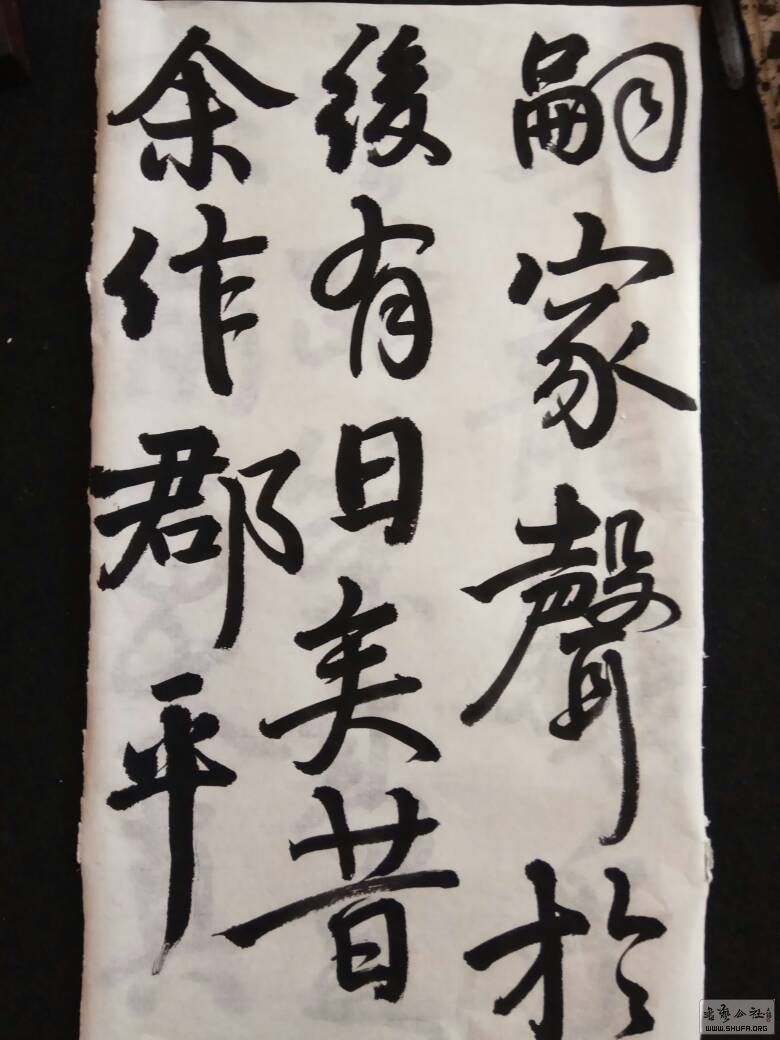 嗣家聲於
後有日矣昔
余作郡平
書藝公社
WWW.SHUFA.ORG